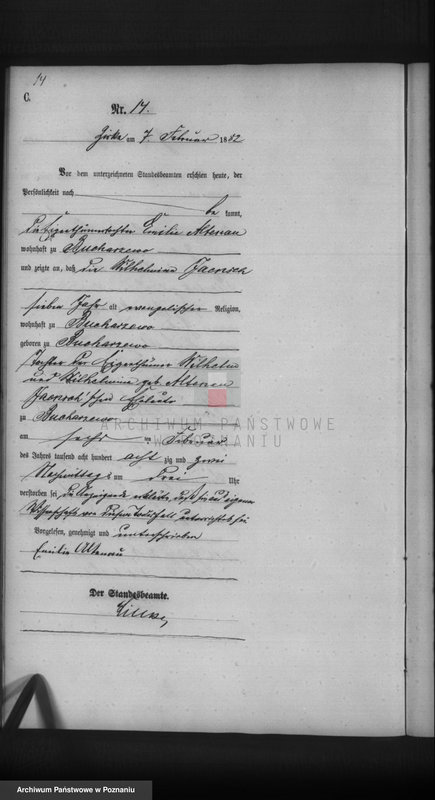 14
C.
Nr. 14.
Zirke am 7. Februar 1882
Vor dem unterzeichneten Standesbeamten erschien heute, der
Persönlichkeit nach
be kannt,
die Eigenthümertochter Emilie Altenau
wohnhaft zu Bucharzewo
und zeigte an, daß die Wilhelmine Jaensch
sieben Jahr alt evangelischer Religion,
wohnhaft zu Bucharzewo
geboren zu Bucharzewo
Tochter der Eigenthümer Wilhelm
und Wilhelmine geb. Altenau
Jaensch'schen Eheleute
zu Bucharzewo
am sechs ten Februar
des Jahres tausend acht hundert acht zig und zwei
Nachmittags um drei Uhr
verstorben sei, die Anzeigende erklärte, daß sie aus eigener
Wissenschaft von diesem Todesfall unterrichtet sei
Vorgelesen, genehmigt und unterschrieben
Emilie Altenau
Der Standesbeamte.
ARCHIWUM PAŃSTWOWE
W POZNANIU
Archiwum Państwowe w Poznaniu